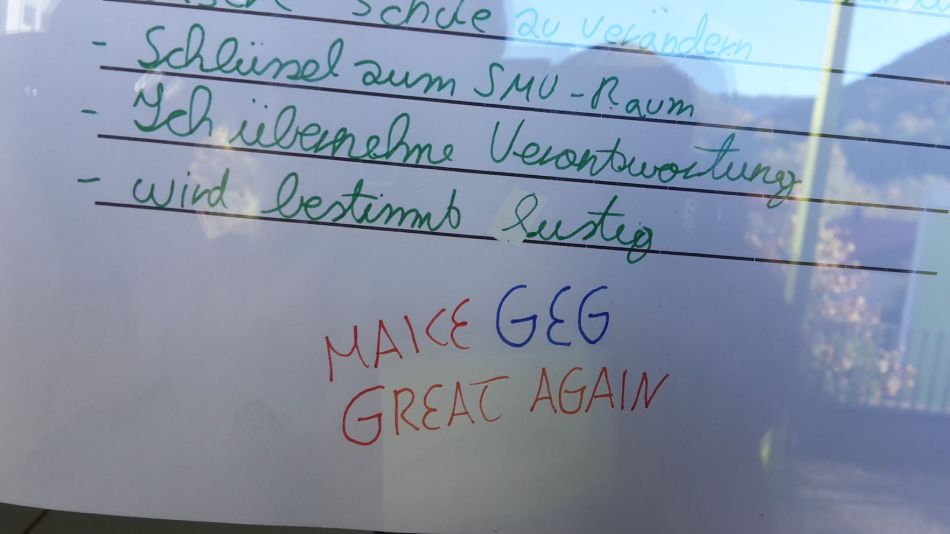 Schule zu verändern
- Schlüssel zum SMV-Raum
- Ich übernehme Verantwortung
- wird bestimmt lustig
MAKE GEG
GREAT AGAIN